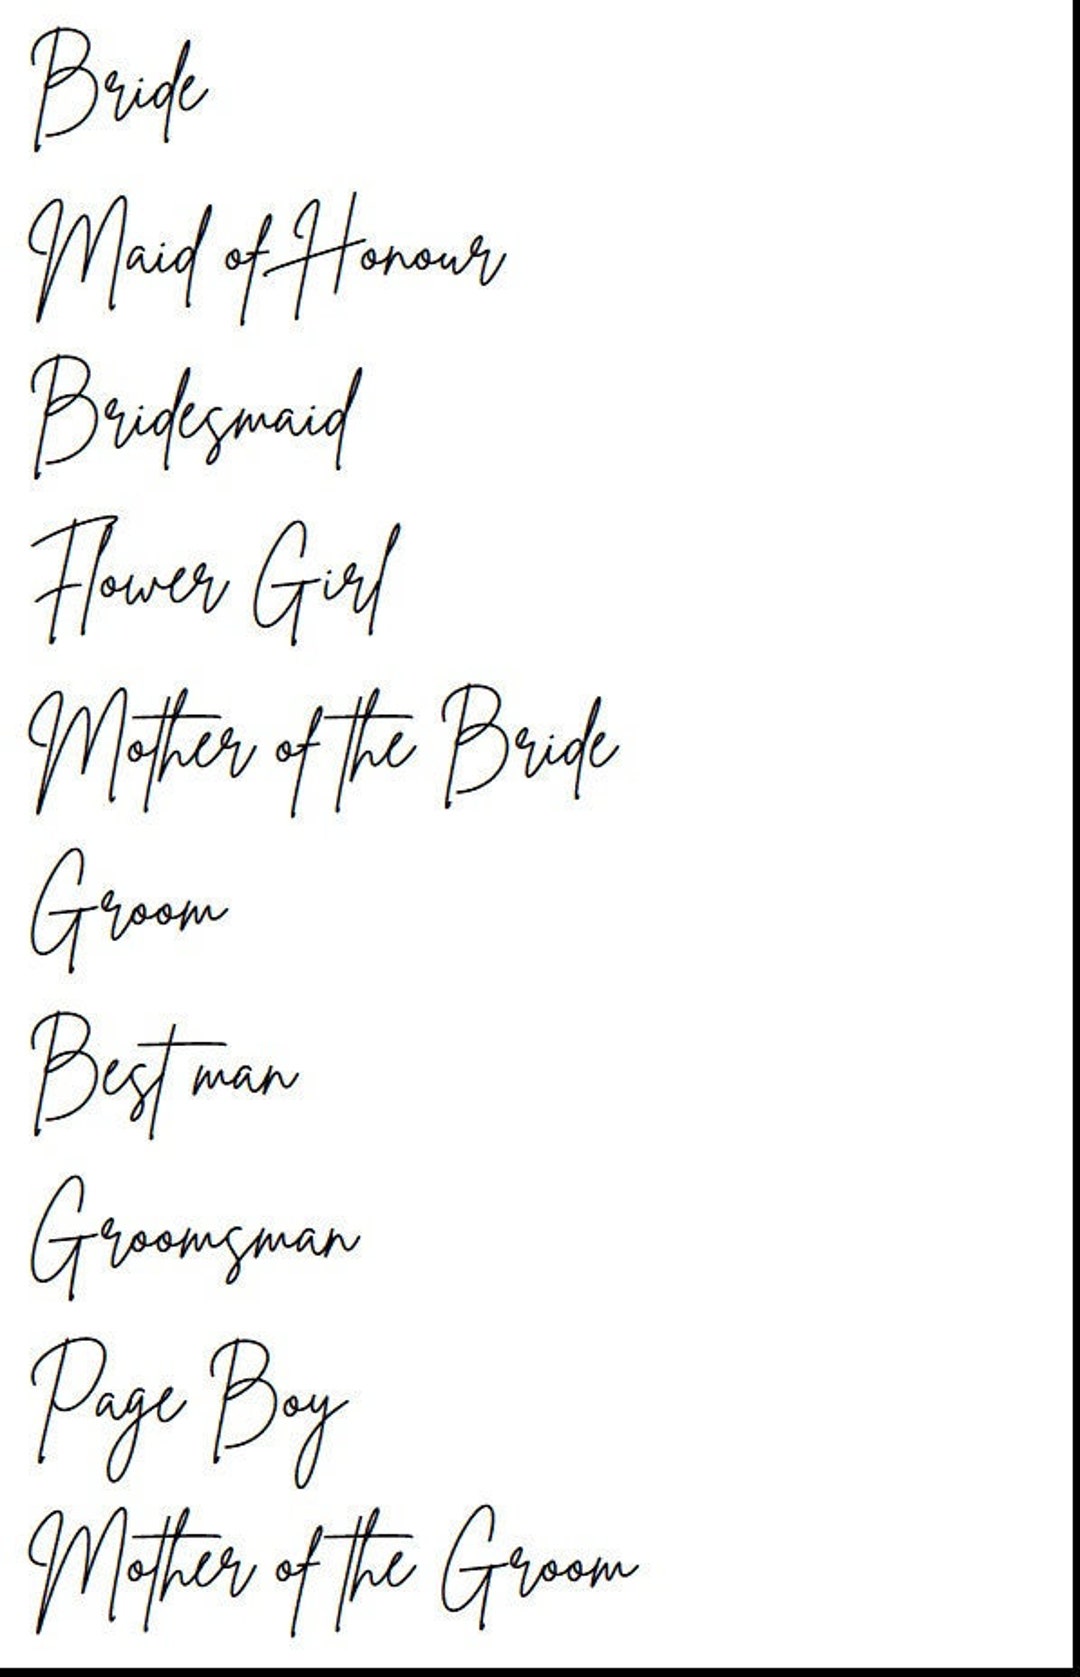 Bride
Maid of Honour
Bridesmaid
Flower Girl
Mother of the Bride
Groom
Best man
Groomsman
Page Boy
Mother of the Groom